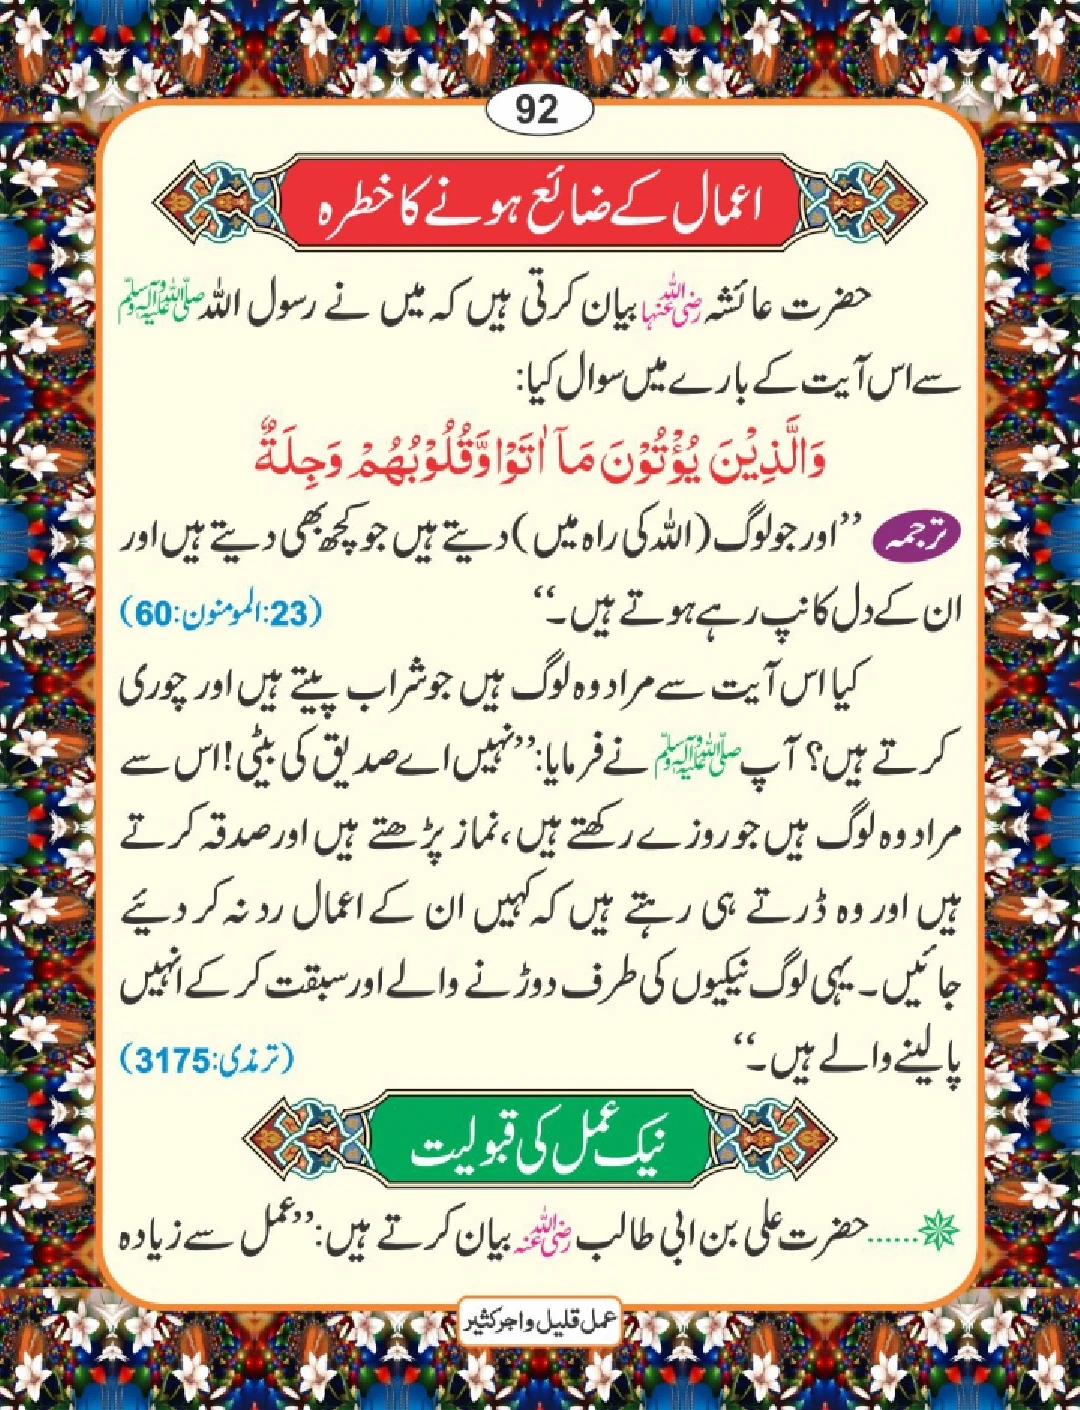 92
اعمال کے ضائع ہونے کا خطرہ
حضرت عائشہ رضی اللہ عنہا بیان کرتی ہیں کہ میں نے رسول اللہ صلی اللہ علیہ وآلہ وسلم
سے اس آیت کے بارے میں سوال کیا:
وَالَّذِیْنَ یُؤْتُوْنَ مَاۤ اٰتَوْا وَّقُلُوْبُهُمْ وَجِلَةٌ
ترجمہ ”اور جو لوگ (اللہ کی راہ میں) دیتے ہیں جو کچھ بھی دیتے ہیں اور
ان کے دل کانپ رہے ہوتے ہیں۔“ (23:المومنون:60)
کیا اس آیت سے مراد وہ لوگ ہیں جو شراب پیتے ہیں اور چوری
کرتے ہیں؟ آپ صلی اللہ علیہ وآلہ وسلم نے فرمایا: ”نہیں اے صدیق کی بیٹی! اس سے
مراد وہ لوگ ہیں جو روزے رکھتے ہیں، نماز پڑھتے ہیں اور صدقہ کرتے
ہیں اور وہ ڈرتے ہی رہتے ہیں کہ کہیں ان کے اعمال رد نہ کر دئیے
جائیں۔ یہی لوگ نیکیوں کی طرف دوڑنے والے اور سبقت کر کے انہیں
پا لینے والے ہیں۔“ (ترمذی:3175)
نیک عمل کی قبولیت
......حضرت علی بن ابی طالب رضی اللہ عنہ بیان کرتے ہیں: ”عمل سے زیادہ
عمل قلیل و اجر کثیر